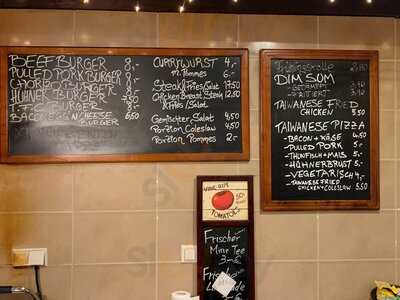 BEEF BURGER 8,-
PULLED PORK BURGER 8,-
CHORIZO BURGER 8,-
HÜHNER BURGER 7,50
BURGER 8,-
BACON CHEESE BURGER 6,50
CURRYWURST
m. Pommes 6,-
Steak Fries/Salat 17,50
Chicken Breast Steak 12,50
Fries/Salat
Gemischter Salat 4,50
Portion Coleslaw 4,50
Portion Pommes 2,-
Frühlingsrolle
DIM SUM
- GEDÄMPFT
- FRITTIERT
TAIWANESE FRIED
CHICKEN 5,50
TAIWANESE PIZZA
- BACON + KÄSE 4,50
- PULLED PORK 5,-
- THUNFISCH + MAIS 5,-
- HÜHNERBRUST 5,-
- VEGETARISCH 4,-
- TAIWANESE FRIED
CHICKEN + COLESLAW 5,50
VINE RIPE
50
TOMATOES
Frischer
Minz Tee
3,-€
Frische